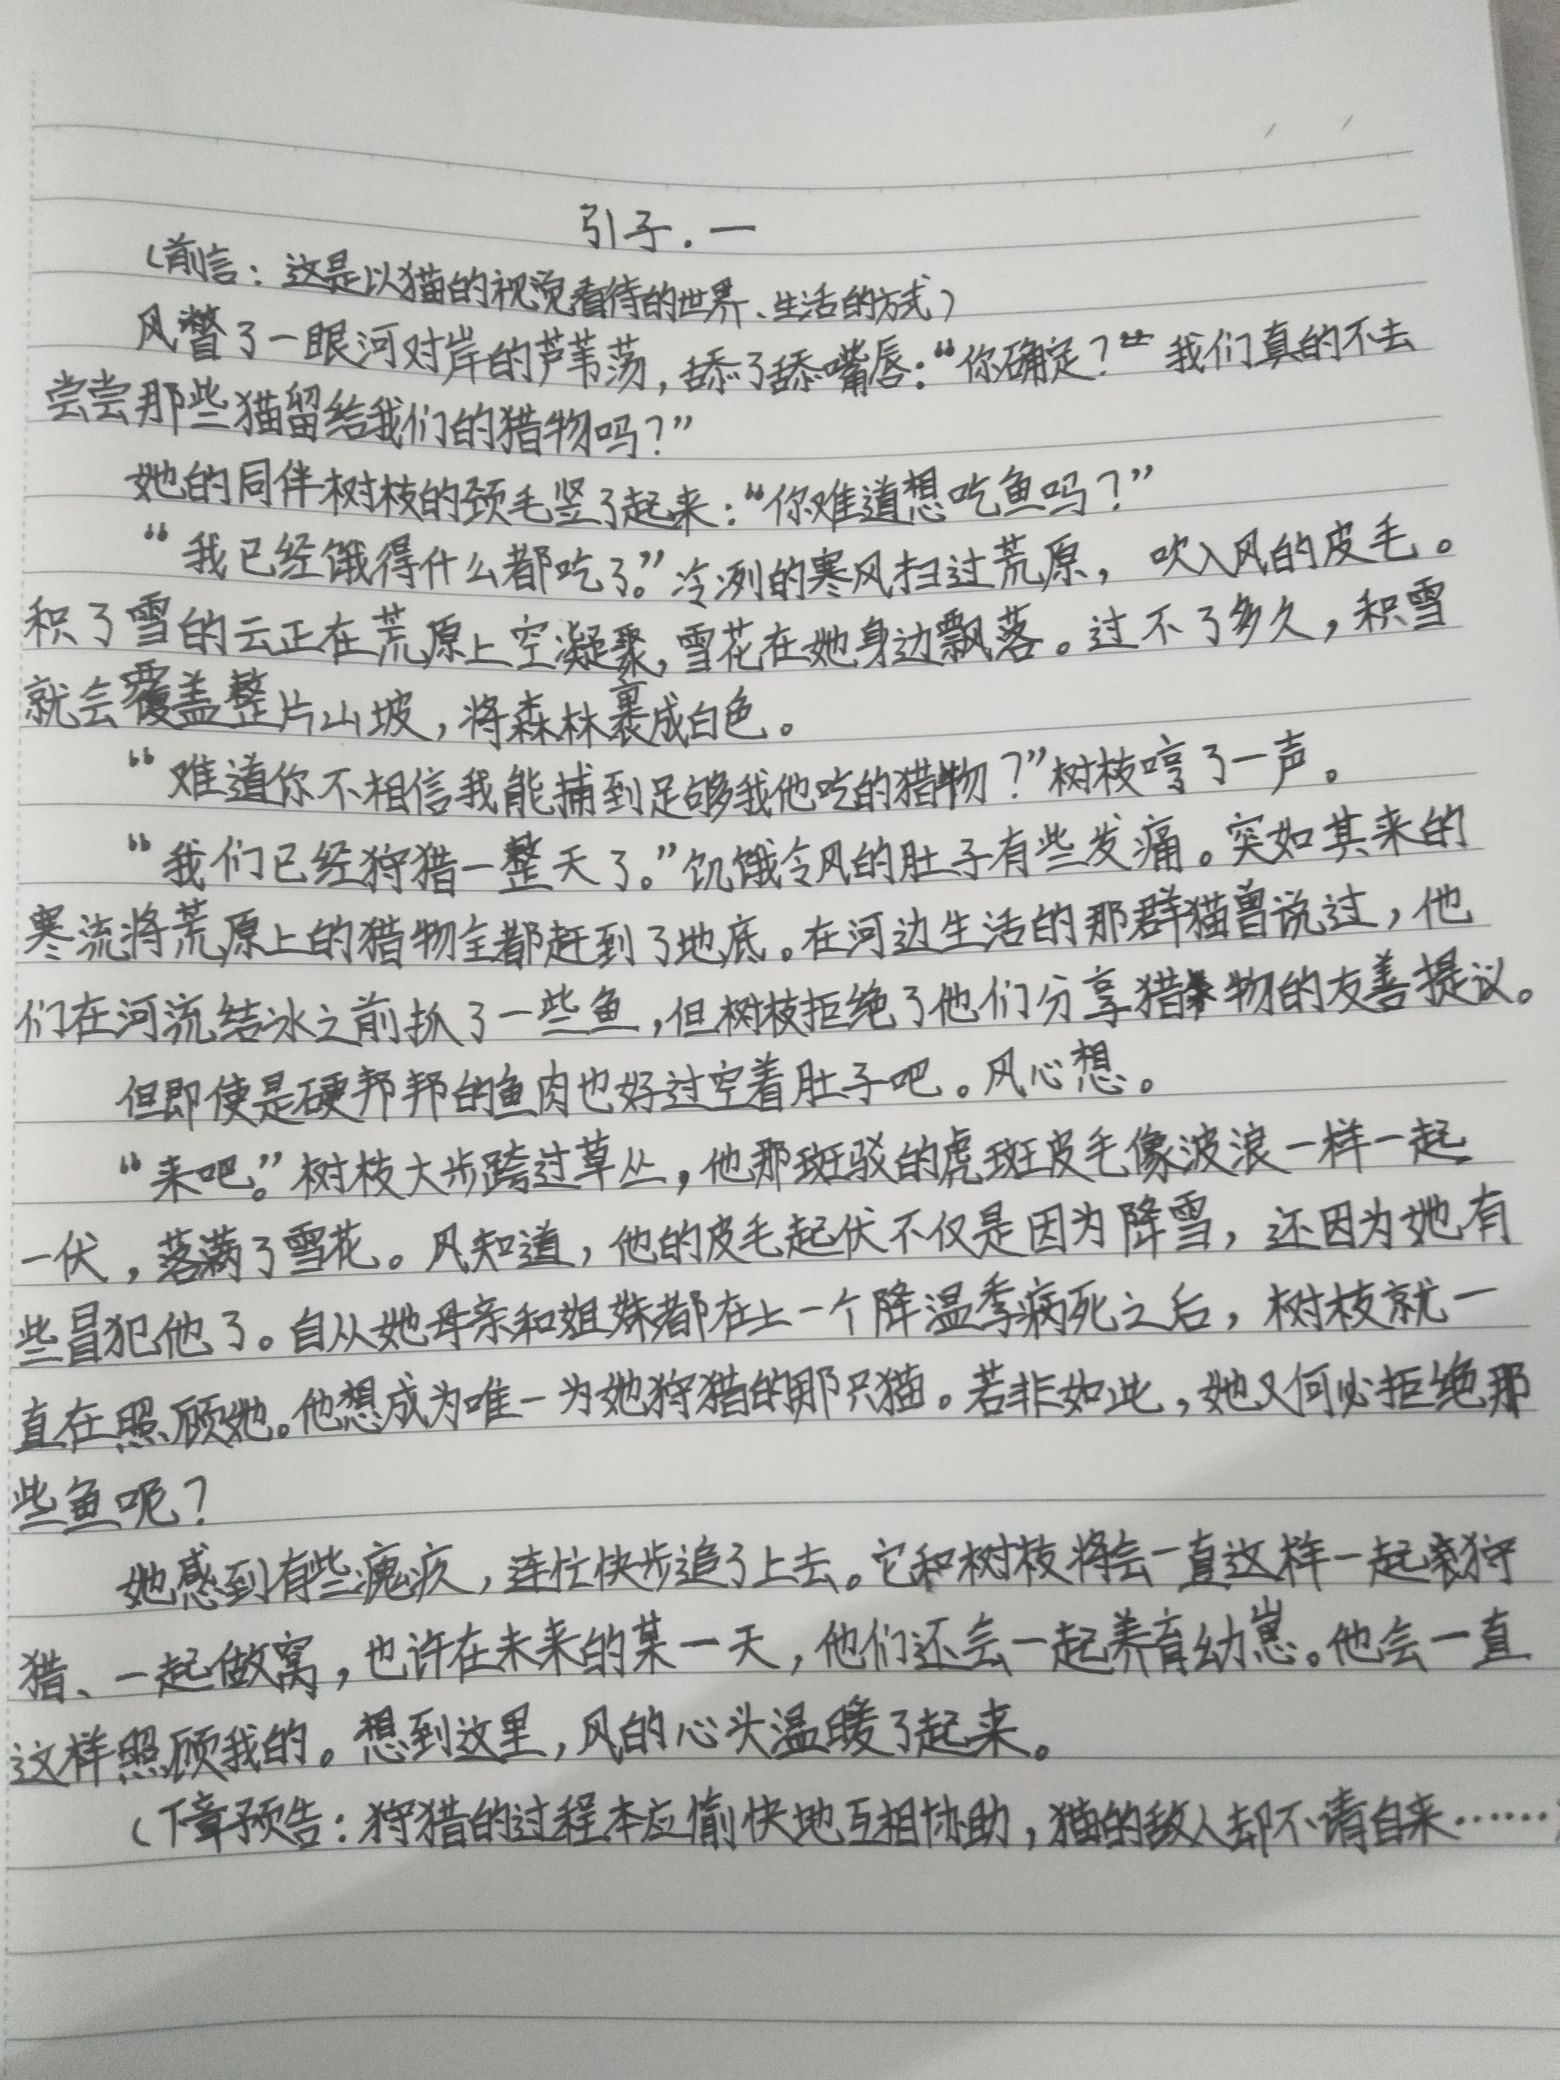 引子.一
(前言：这是以猫的视觉看待的世界、生活的方式)
风瞥了一眼河对岸的芦苇荡，舔了舔嘴唇：“你确定？” 我们真的不去
尝尝那些猫留给我们的猎物吗？”
她的同伴树枝的颈毛竖了起来：“你难道想吃鱼吗？”
“我已经饿得什么都吃了。”冷冽的寒风扫过荒原，吹入风的皮毛。
积了雪的云正在荒原上空凝聚，雪花在她身边飘落。过不了多久，积雪
就会覆盖整片山坡，将森林裹成白色。
“难道你不相信我能捕到足够我他吃的猎物？”树枝哼了一声。
“我们已经狩猎一整天了。”饥饿令风的肚子有些发痛。突如其来的
寒流将荒原上的猎物全都赶到了地底。在河边生活的那群猫曾说过，他
们在河流结冰之前抓了一些鱼，但树枝拒绝了他们分享猎物的友善提议。
但即使是硬邦邦的鱼肉也好过空着肚子吧。风心想。
“来吧。”树枝大步跨过草丛，他那斑驳的虎斑皮毛像波浪一样一起
一伏，落满了雪花。风知道，他的皮毛起伏不仅是因为降雪，还因为她有
些冒犯他了。自从她母亲和姐妹都在上一个降温季病死之后，树枝就一
直在照顾她。他想成为唯一为她狩猎的那只猫。若非如此，她又何必拒绝那
些鱼呢？
她感到有些愧疚，连忙快步追了上去。它和树枝将会一直这样一起狩
猎、一起做窝，也许在未来的某一天，他们还会一起养育幼崽。他会一直
这样照顾我的。想到这里，风的心头温暖了起来。
(下章预告：狩猎的过程本应愉快地互相协助，猫的敌人却不请自来……)